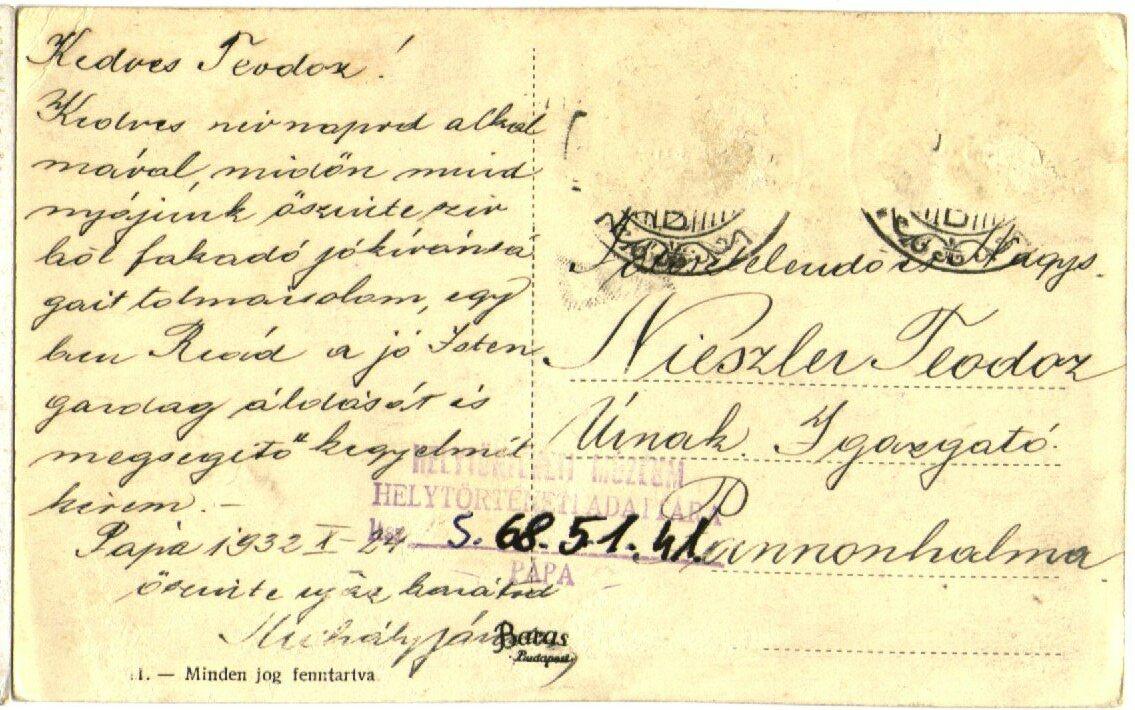 Kedves Teodoz!
Kedves névnapod alkal
mával, midőn mind
nyájunk őszinte szív
ből fakadó jókívánsá
gait tolmácsolom, egy
ben Reád a jó Isten
gazdag áldását és
megsegítő kegyelmét
kérem.-
Pápa 1932 X-27
őszinte igaz barátod
Mihály
Főtisztelendő és Nagys.
Nieszler Teodoz
Úrnak. Igazgató.
Pannonhalma
HELYTÖRTÉNETI MÚZEUM
HELYTÖRTÉNETI ADATTÁRA
lsz. S. 68.51.41.
PÁPA
Barasits
Budapest
1. — Minden jog fenntartva